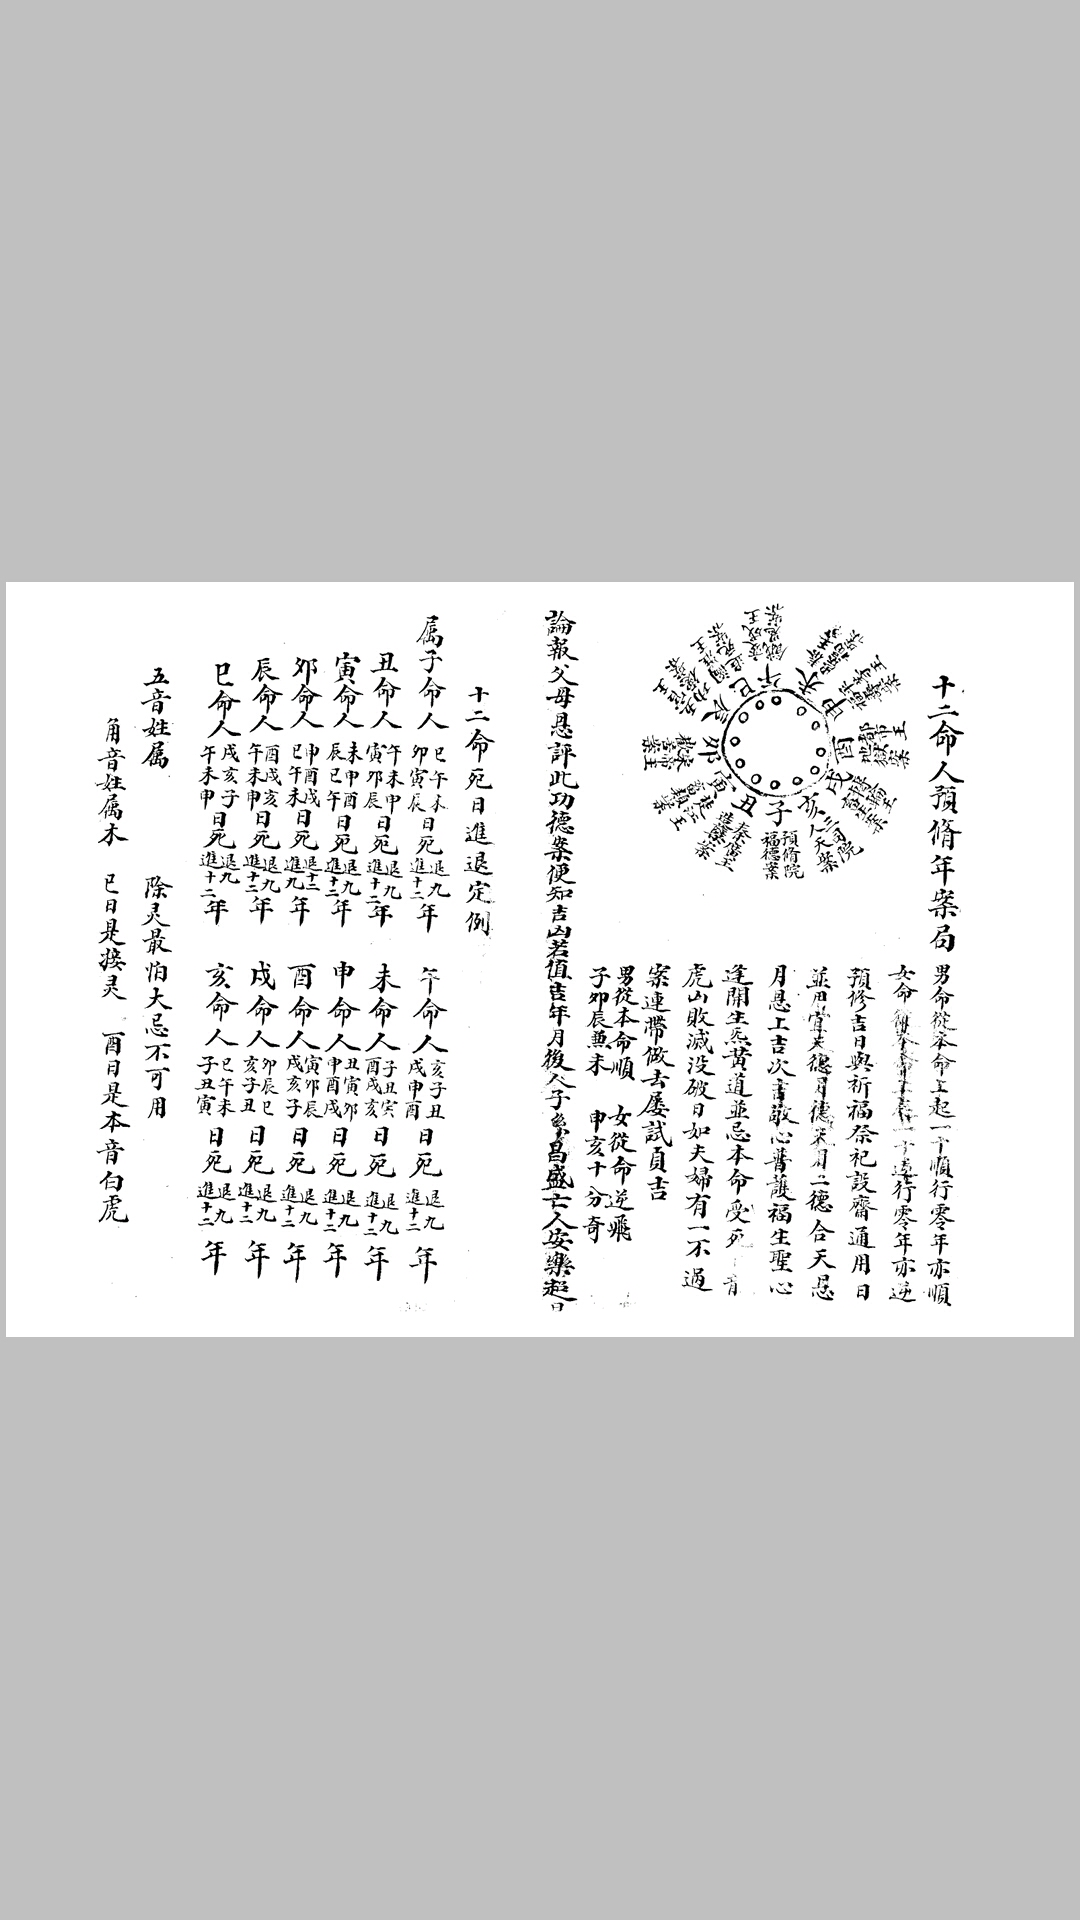 十二命人預脩年案局
子 預脩院 福德案
丑 秦廣王
寅
卯 歡喜案
辰
巳
午
未
申
酉 都市王 地獄案
戌
亥 三司院 人天案
男命從本命上起一十順行零年亦順
女命從本命上起一十逆行零年亦逆
預修吉日與祈福祭祀設齋通用日
並用宜天德月德天月二德合天恩
月恩上吉次吉敬心普護福生聖心
逢開生炁黃道並忌本命受死
虎山敗滅没破日如夫婦有一不過
案連帶做去屡試貞吉
男從本命順 女從命逆飛
子卯辰兼未 申亥十分奇
論報父母恩評此功德案便知吉凶若值吉年月後人子孫昌盛亡人安樂超日
十二命死日進退定例
属子命人 巳午未 卯寅辰 日死 退九 進十二 年
午命人 亥子丑 戌申酉 日死 退九 進十二 年
丑命人 午未申 寅卯辰 日死 退九 進十二 年
未命人 子丑寅 酉戌亥 日死 退九 進十二 年
寅命人 未申酉 辰巳午 日死 退九 進十二 年
申命人 丑寅卯 申酉戌 日死 退九 進十二 年
卯命人 申酉戌 巳午未 日死 退十二 進九 年
酉命人 寅卯辰 戌亥子 日死 退九 進十二 年
辰命人 酉戌亥 午未申 日死 退九 進十二 年
戌命人 卯辰巳 亥子丑 日死 退九 進十二 年
巳命人 戌亥子 午未申 日死 退九 進十二 年
亥命人 巳午未 子丑寅 日死 退九 進十二 年
五音姓属 除灵最怕大忌不可用
角音姓属木 巳日是接灵 酉日是本音白虎